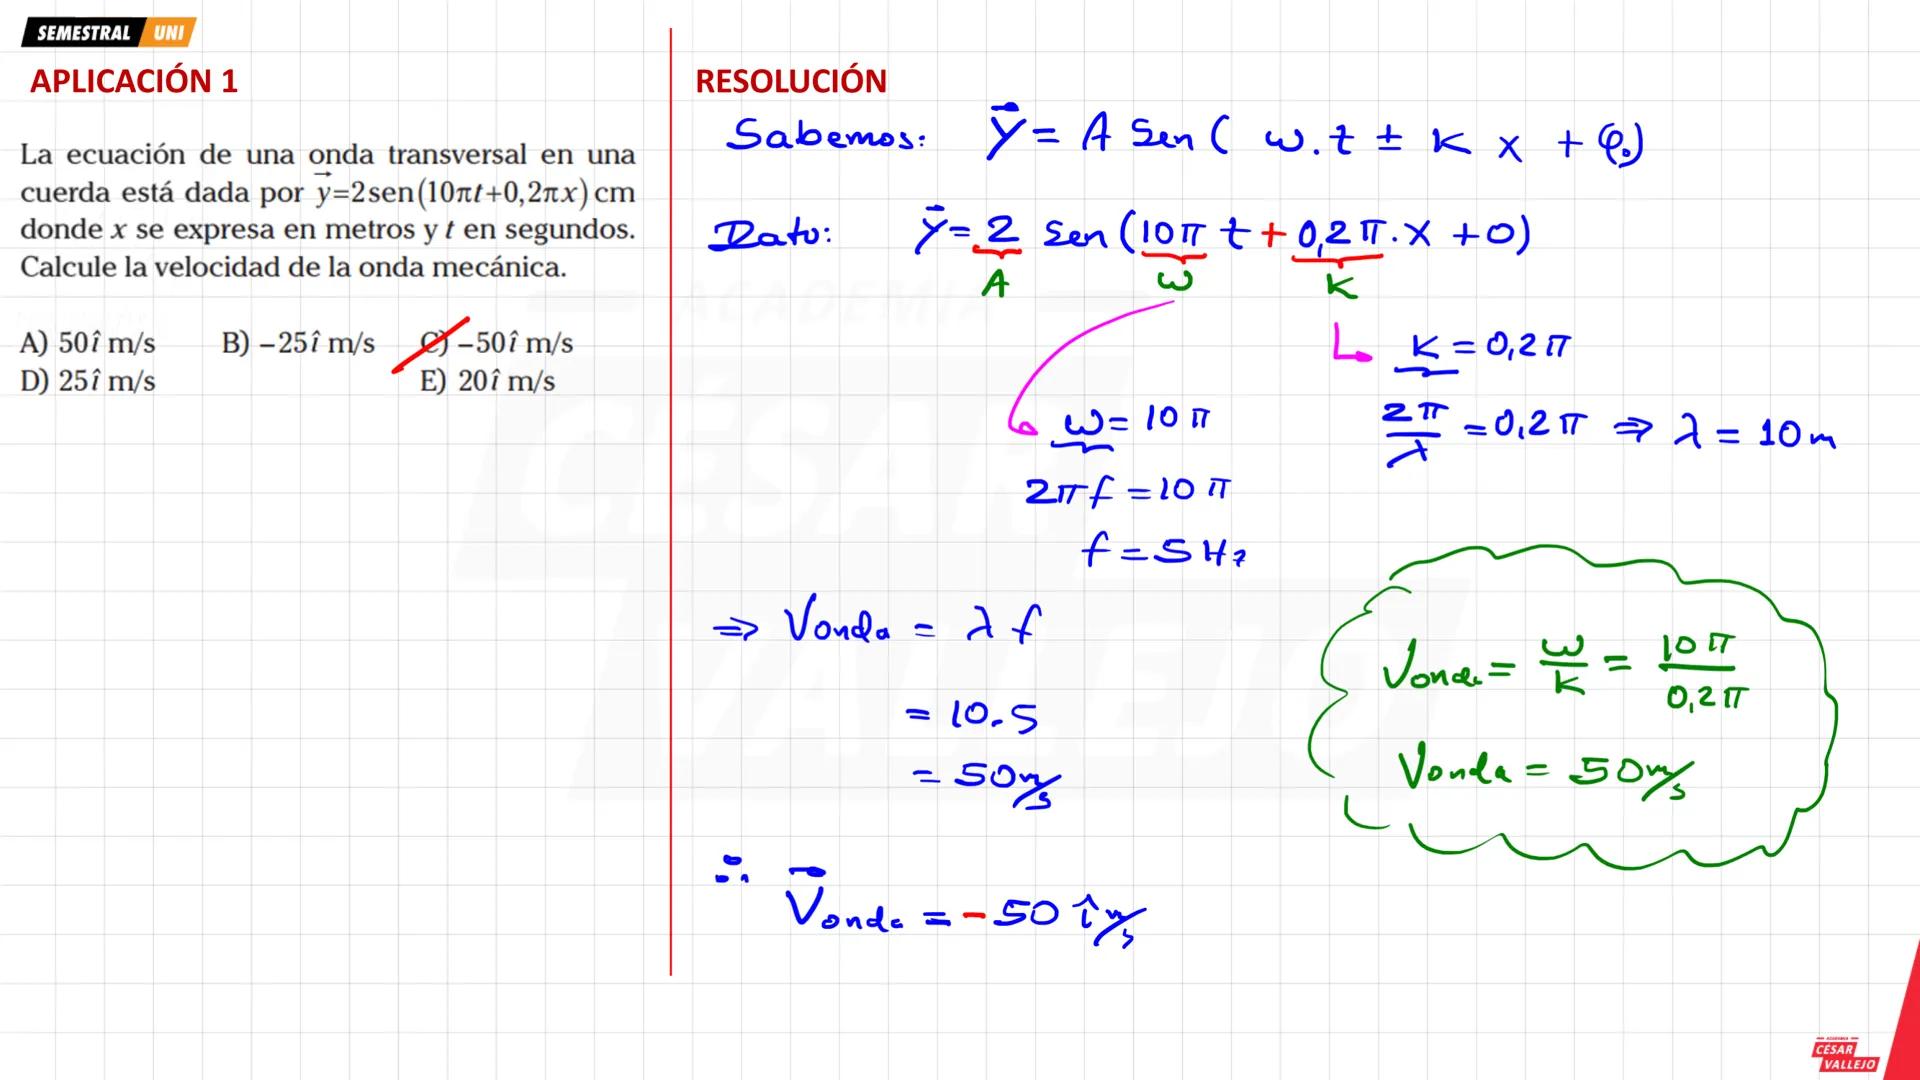 SEMESTRAL UNI
APLICACIÓN 1
La ecuación de una onda transversal en una
cuerda está dada por y⃗=2sen(10πt+0,2πx) cm
donde x se expresa en metros y t en segundos.
Calcule la velocidad de la onda mecánica.
A) 50î m/s B) −25î m/s C) −50î m/s
D) 25î m/s E) 20î m/s
RESOLUCIÓN
Sabemos: Y⃗ = A Sen ( ω.t ± K x + φ₀)
Dato: Y⃗ = 2 Sen (10π t + 0,2π.X + 0)
A ω K
K = 0,2π
2π/λ = 0,2π ⇒ λ = 10m
ω = 10π
2πf = 10π
f = 5Hz
⇒ Vonda = λ f
= 10.5
= 50 m/s
∴ V⃗onda = -50 î m/s
Vonda = ω/K = 10π/0,2π
Vonda = 50 m/s
ACADEMIA
CÉSAR
VALLEJO
ACADEMIA
CÉSAR
VALLEJO